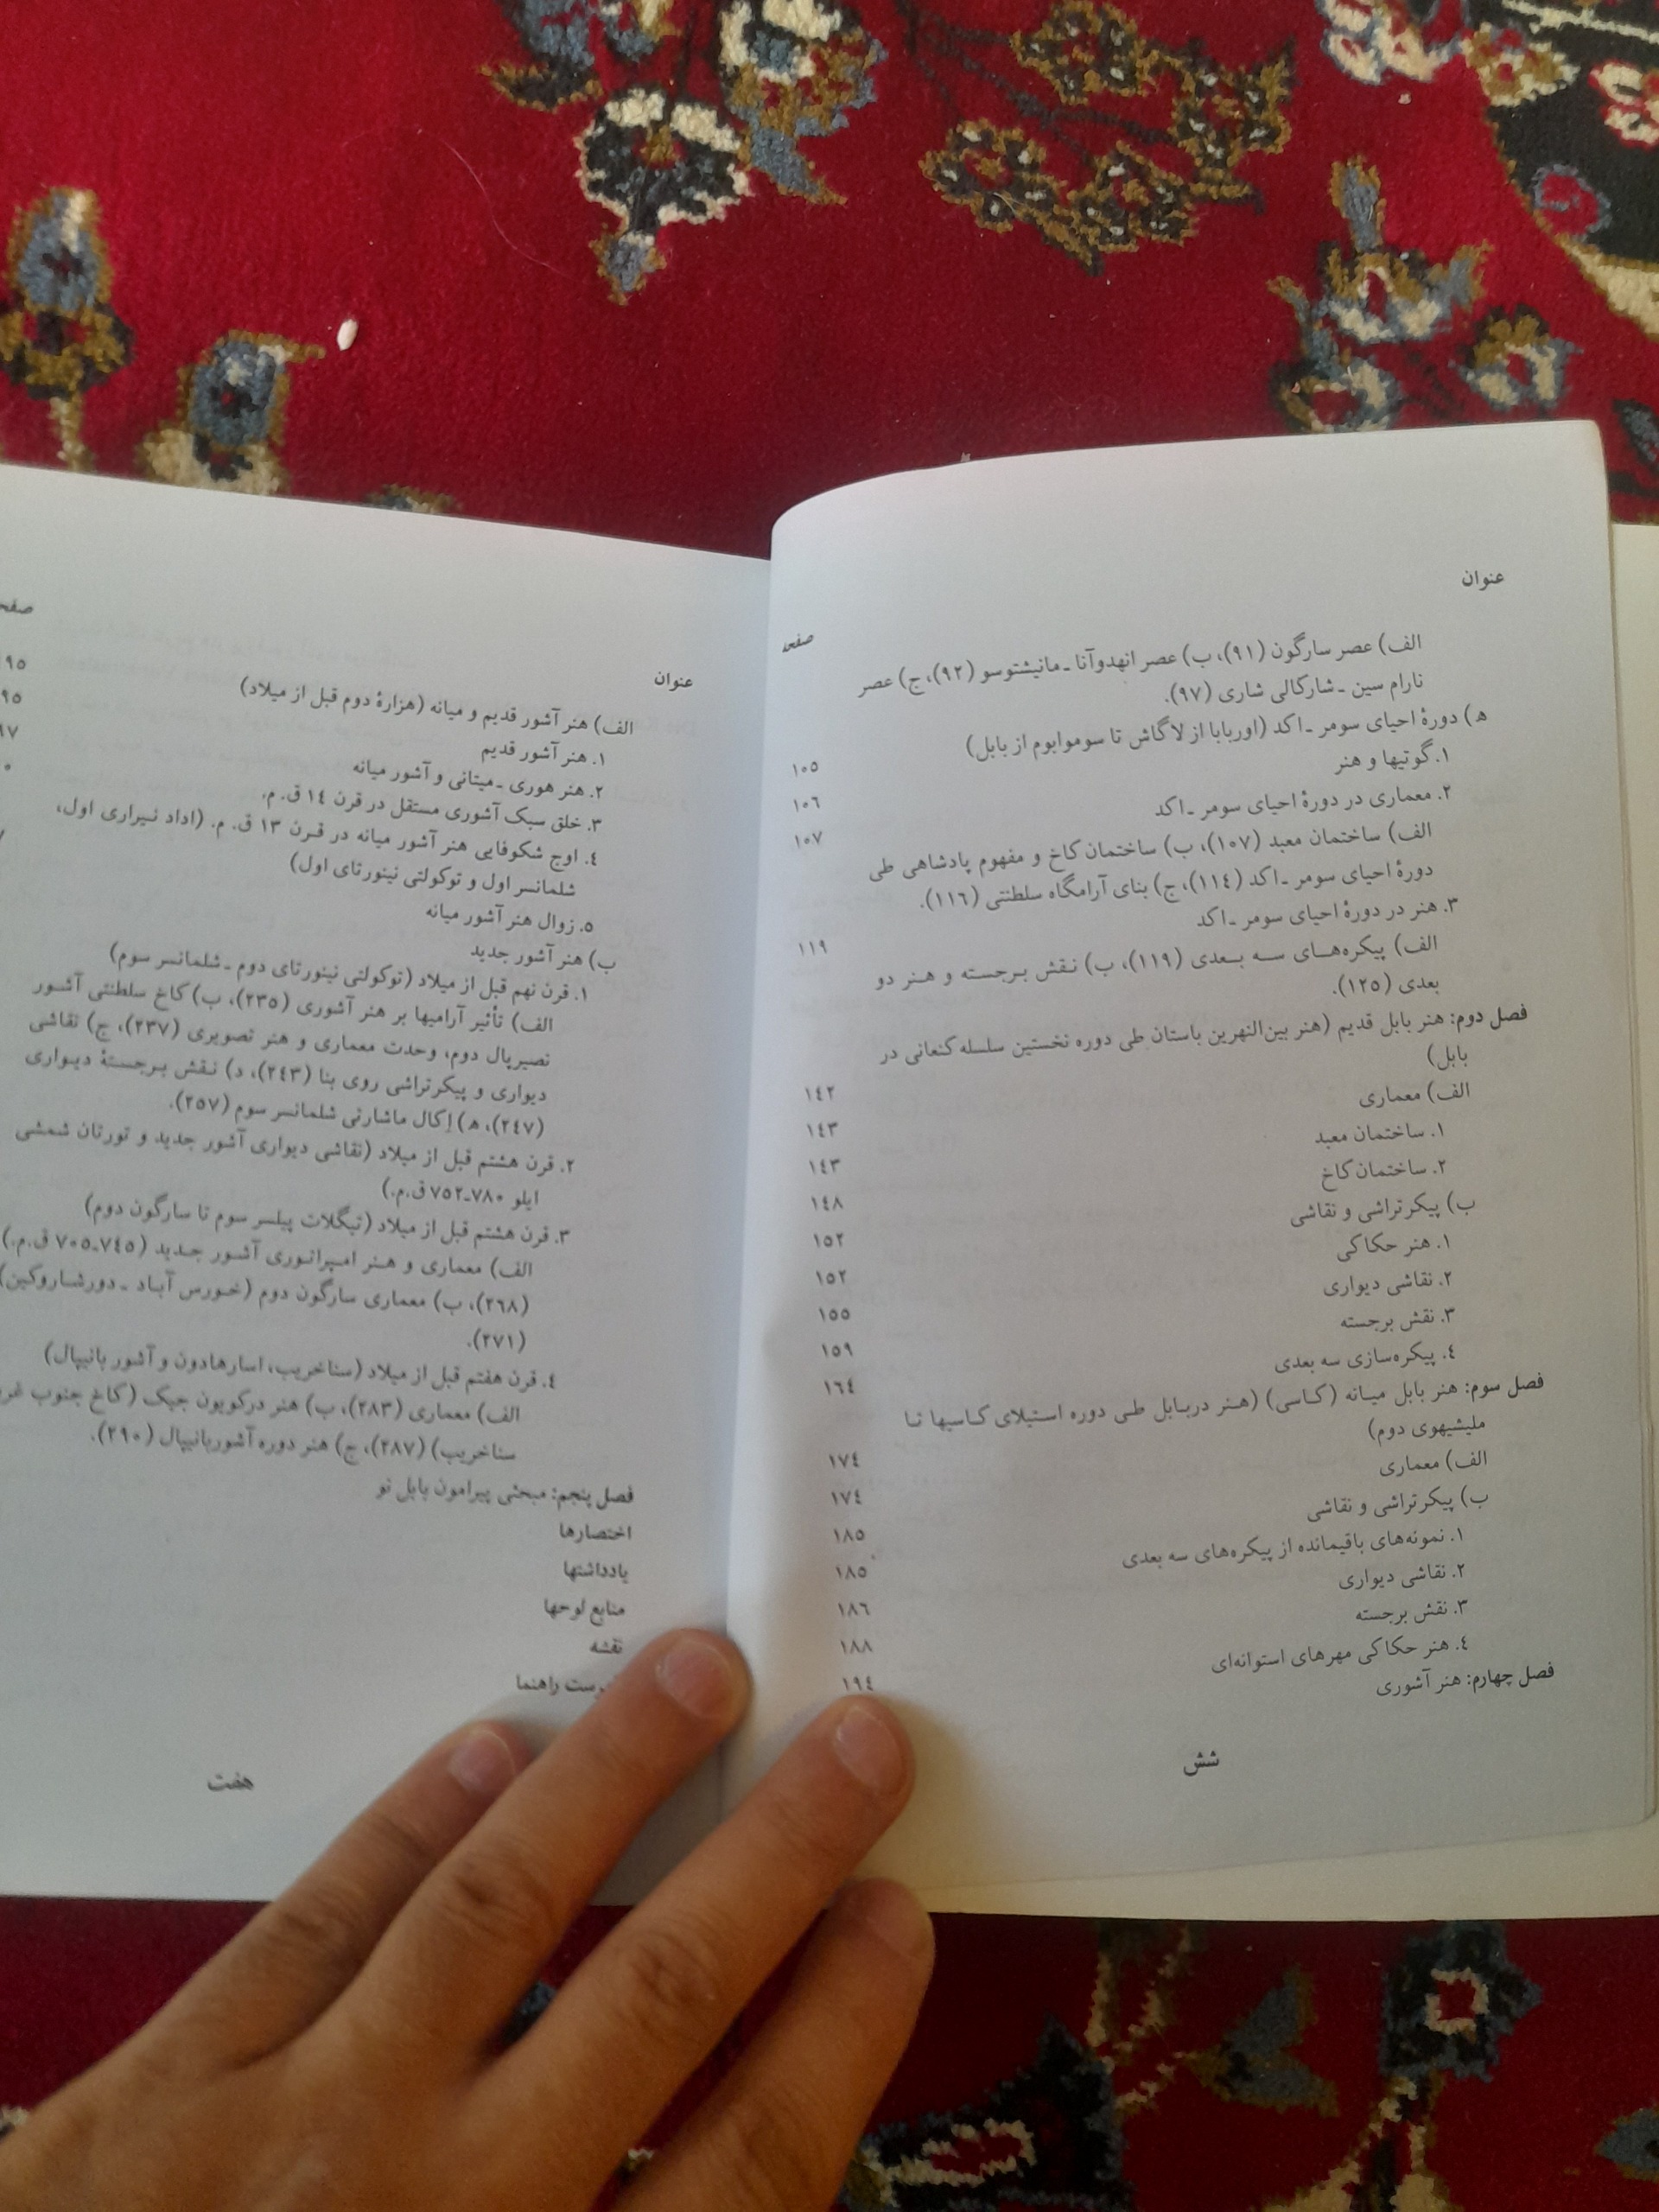 عنوان
صفحه
الف) عصر سارگون (٩١)، ب) عصر انهدوآنا ـ مانیشتوسو (٩٢)، ج) عصر
نارام سین ـ شارکالی شاری (٩٧).
ه) دورهٔ احیای سومر ـ اکد (اوربابا از لاگاش تا سوموابوم از بابل) ١٠٥
١. گوتیها و هنر ١٠٦
٢. معماری در دورهٔ احیای سومر ـ اکد ١٠٧
الف) ساختمان معبد (١٠٧)، ب) ساختمان کاخ و مفهوم پادشاهی طی
دورهٔ احیای سومر ـ اکد (١١٤)، ج) بنای آرامگاه سلطنتی (١١٦).
٣. هنر در دورهٔ احیای سومر ـ اکد ١١٩
الف) پیکره‌های سه بعدی (١١٩)، ب) نقش برجسته و هنر دو
بعدی (١٢٥).
فصل دوم: هنر بابل قدیم (هنر بین‌النهرین باستان طی دوره نخستین سلسله کنعانی در
بابل) ١٤٢
الف) معماری ١٤٣
١. ساختمان معبد ١٤٣
٢. ساختمان کاخ ١٤٨
ب) پیکرتراشی و نقاشی ١٥٢
١. هنر حکاکی ١٥٢
٢. نقاشی دیواری ١٥٥
٣. نقش برجسته ١٥٩
٤. پیکره‌سازی سه بعدی ١٦٤
فصل سوم: هنر بابل میانه (کاسی) (هنر دربابل طی دوره استیلای کاسیها تا
ملیشیهوی دوم) ١٧٤
الف) معماری ١٧٤
ب) پیکرتراشی و نقاشی ١٨٥
١. نمونه‌های باقیمانده از پیکره‌های سه بعدی ١٨٥
٢. نقاشی دیواری ١٨٦
٣. نقش برجسته ١٨٨
٤. هنر حکاکی مهرهای استوانه‌ای ١٩٤
فصل چهارم: هنر آشوری
شش
عنوان
الف) هنر آشور قدیم و میانه (هزارهٔ دوم قبل از میلاد)
١. هنر آشور قدیم
٢. هنر هوری ـ میتانی و آشور میانه
٣. خلق سبک آشوری مستقل در قرن ١٤ ق.م.
٤. اوج شکوفایی هنر آشور میانه در قرن ١٣ ق.م. (اداد نیراری اول،
شلمانسر اول و توکولتی نینورتای اول)
٥. زوال هنر آشور میانه
ب) هنر آشور جدید
١. قرن نهم قبل از میلاد (توکولتی نینورتای دوم ـ شلمانسر سوم)
الف) تأثیر آرامیها بر هنر آشوری (٢٣٥)، ب) کاخ سلطنتی آشور
نصیرپال دوم، وحدت معماری و هنر تصویری (٢٣٧)، ج) نقاشی
دیواری و پیکرتراشی روی بنا (٢٤٣)، د) نقش برجستهٔ دیواری
(٢٤٧)، ه) اِکال ماشارتی شلمانسر سوم (٢٥٧).
٢. قرن هشتم قبل از میلاد (نقاشی دیواری آشور جدید و تورتان شمشی
ایلو ٧٨٠ـ٧٥٢ ق.م.)
٣. قرن هشتم قبل از میلاد (تیگلات پیلسر سوم تا سارگون دوم)
الف) معماری و هنر امپراتوری آشور جدید (٧٤٥ـ٧٠٥ ق.م.)
(٢٦٨)، ب) معماری سارگون دوم (خورس آباد ـ دورشاروکین)
(٢٧١).
٤. قرن هفتم قبل از میلاد (سناخریب، اسارهادون و آشور بانیپال)
الف) معماری (٢٨٣)، ب) هنر درکویون جیک (کاخ جنوب
سناخریب) (٢٨٧)، ج) هنر دوره آشوربانیپال (٢٩٠).
فصل پنجم: مبحثی پیرامون بابل نو
اختصارها
یادداشتها
منابع لوحها
نقشه
راهنما
هفت